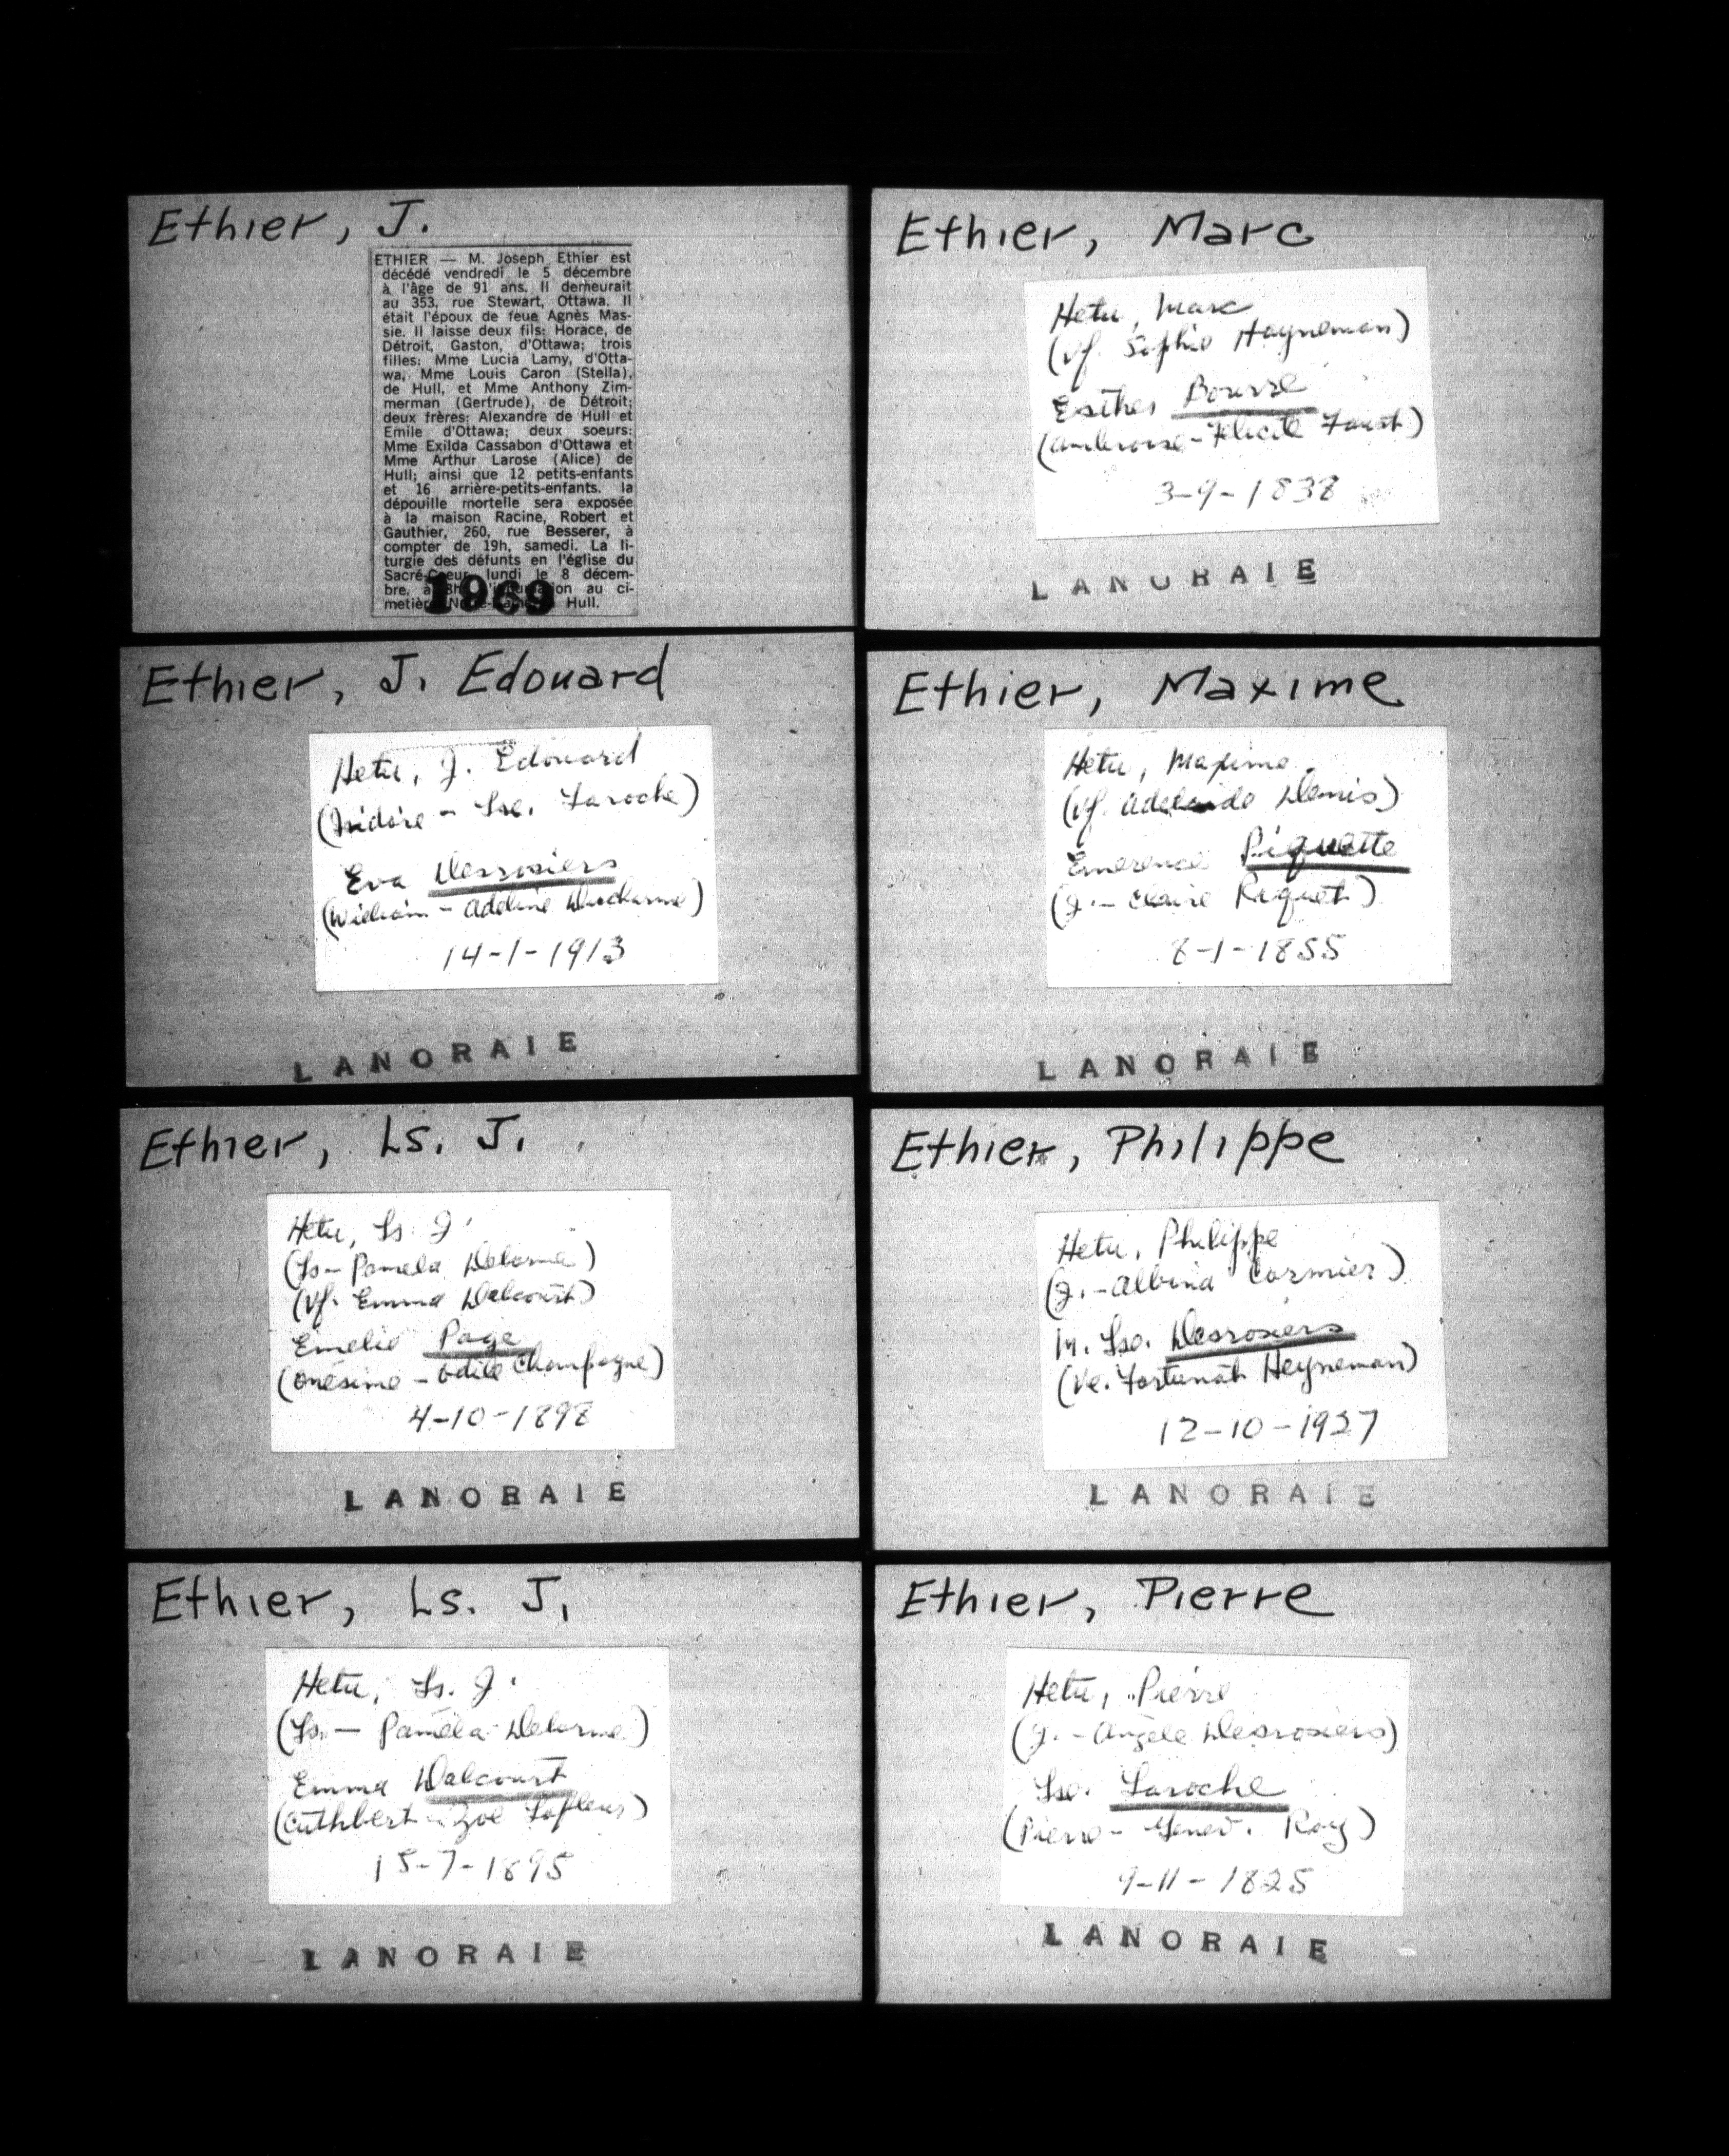 Ethier, J.
ETHIER — M. Joseph Ethier est
décédé vendredi le 5 décembre
à l'âge de 91 ans. Il demeurait
au 353, rue Stewart, Ottawa. Il
était l'époux de feue Agnès Mas-
sie. Il laisse deux fils: Horace, de
Détroit, Gaston, d'Ottawa; trois
filles: Mme Lucia Lamy, d'Otta-
wa, Mme Louis Caron (Stella),
de Hull, et Mme Anthony Zim-
merman (Gertrude), de Détroit;
deux frères: Alexandre de Hull et
Emile d'Ottawa; deux soeurs:
Mme Exilda Cassabon d'Ottawa et
Mme Arthur Larose (Alice) de
Hull; ainsi que 12 petits-enfants
et 16 arrière-petits-enfants. la
dépouille mortelle sera exposée
à la maison Racine, Robert et
Gauthier, 260, rue Besserer, à
compter de 19h, samedi. La li-
turgie des défunts en l'église du
Sacré-Coeur, lundi le 8 décem-
bre, à au ci-
Hull.
1969
Ethier, J. Edouard
Hetu, J. Edouard
(Isidore - Lse. Laroche)
Eva Desrosiers
(William - Adeline Ducharme)
14-1-1913
LANORAIE
Ethier, Ls. J.
Hetu, Ls. J.
(Ls - Pamela Delorme)
(Vf. Emma Dalcourt)
Emelie Page
(Onésime - Odile Champagne)
4-10-1898
LANORAIE
Ethier, Ls. J.
Hetu, Ls. J.
(Ls. - Paméla Delorme)
Emma Dalcourt
(Cuthbert - Zoé Lafleur)
15-7-1895
LANORAIE
Ethier, Marc
Hetu, Marc
(Vf. Sophie Hayneman)
Esther Bourre
(Ambroise - Félicité Faust)
3-9-1838
LANORAIE
Ethier, Maxime
Hetu, Maxime
(Vf. Adelaide Denis)
Emerence Piquette
(J. - Claire Riquet)
8-1-1855
LANORAIE
Ethier, Philippe
Hetu, Philippe
(J. - Albina Cormier)
M. Lse. Desrosiers
(Ve. Fortunat Heyneman)
12-10-1927
LANORAIE
Ethier, Pierre
Hetu, Pierre
(J. - Angèle Desrosiers)
Lse. Laroche
(Pierre - Genev. Roy)
9-11-1825
LANORAIE